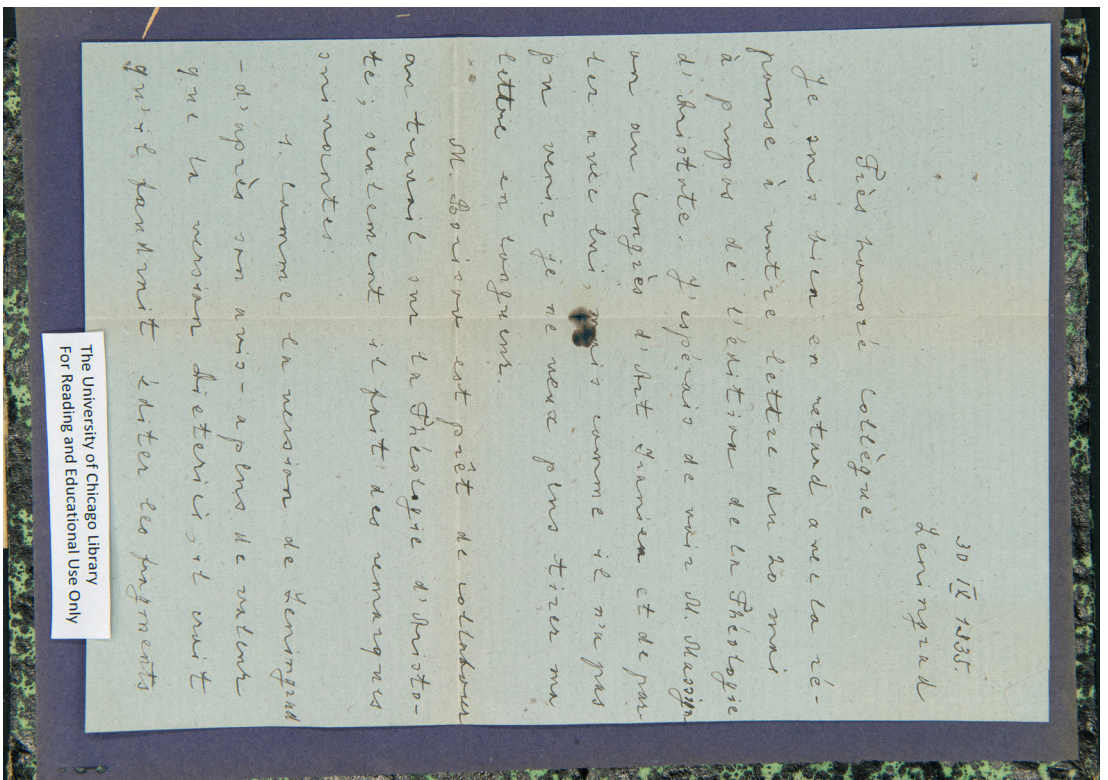 30 IX 1935.
Leningrad
Très honoré Collègue
Je suis bien en retard avec la ré-
ponse à votre lettre du 20 mai
à propos de l'édition de la Théologie
d'Aristote. J'espérais de voir M. Massign
on au Congrès d'Art Iranien et de par
ler avec lui, mais comme il n'a pas
pu venir je ne veux plus tirer ma
lettre en longueur.
M. Borisov est prêt de collaborer
au travail sur la Théologie d'Aristo-
te; seulement il fait des remarques
suivantes:
1. Comme la version de Leningrad
- d'après son avis - a plus de valeur
que la version Dieterici, il croit
qu'il faudrait éditer les fragments
The University of Chicago Library
For Reading and Educational Use Only